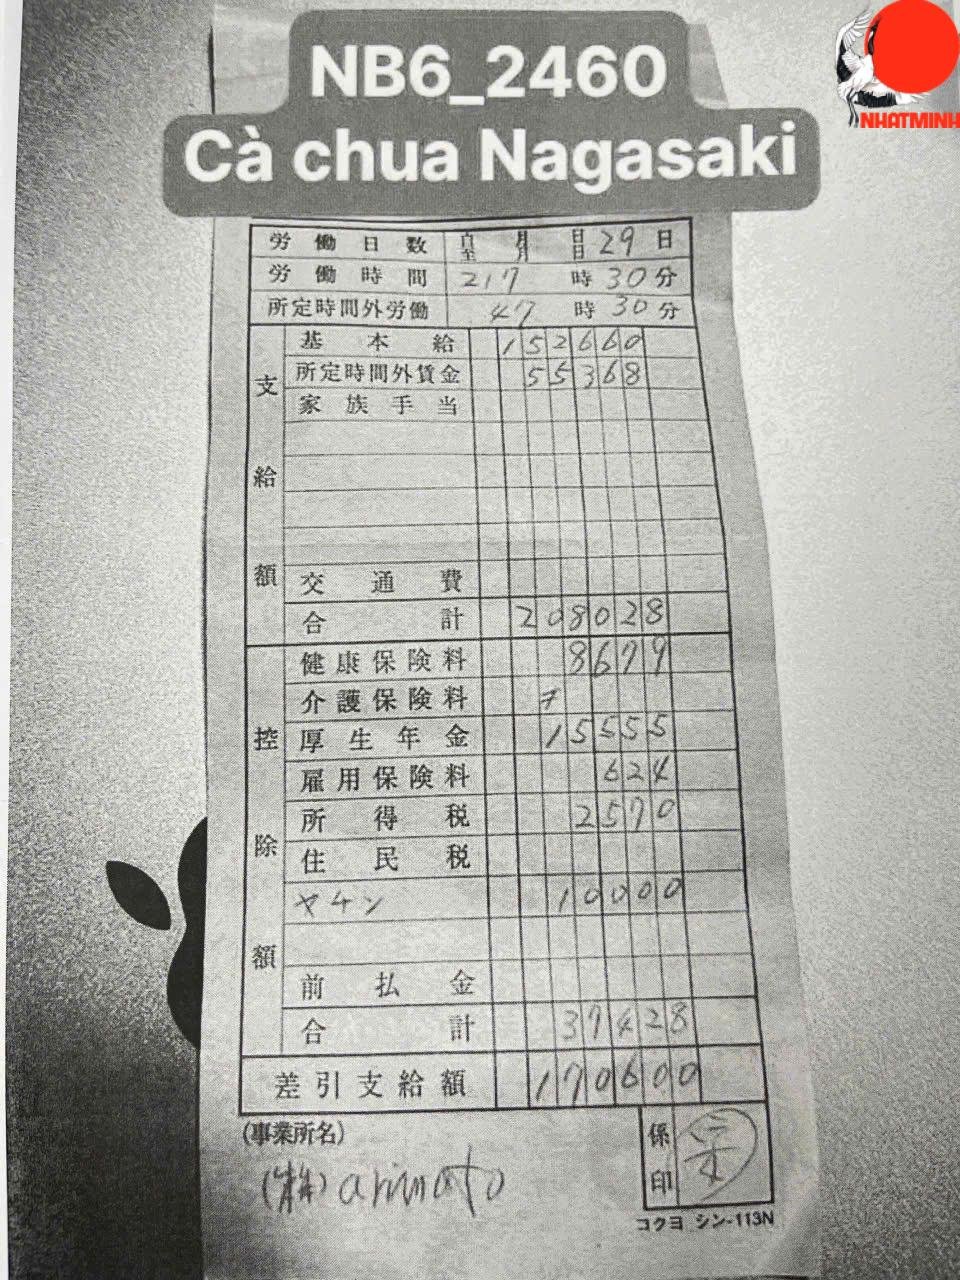 NB6_2460
Cà chua Nagasaki
NHATMINH
労働日数 自 月 日 至 月 日 29日
労働時間 217時30分
所定時間外労働 47時30分
支給額
基本給 152660
所定時間外賃金 55368
家族手当
交通費
合計 208028
控除額
健康保険料 8679
介護保険料
厚生年金 15555
雇用保険料 624
所得税 2570
住民税
ヤチン 10000
前払金
合計 37428
差引支給額 170600
(事業所名) 係印
(株) arimato
コクヨ シン-113N